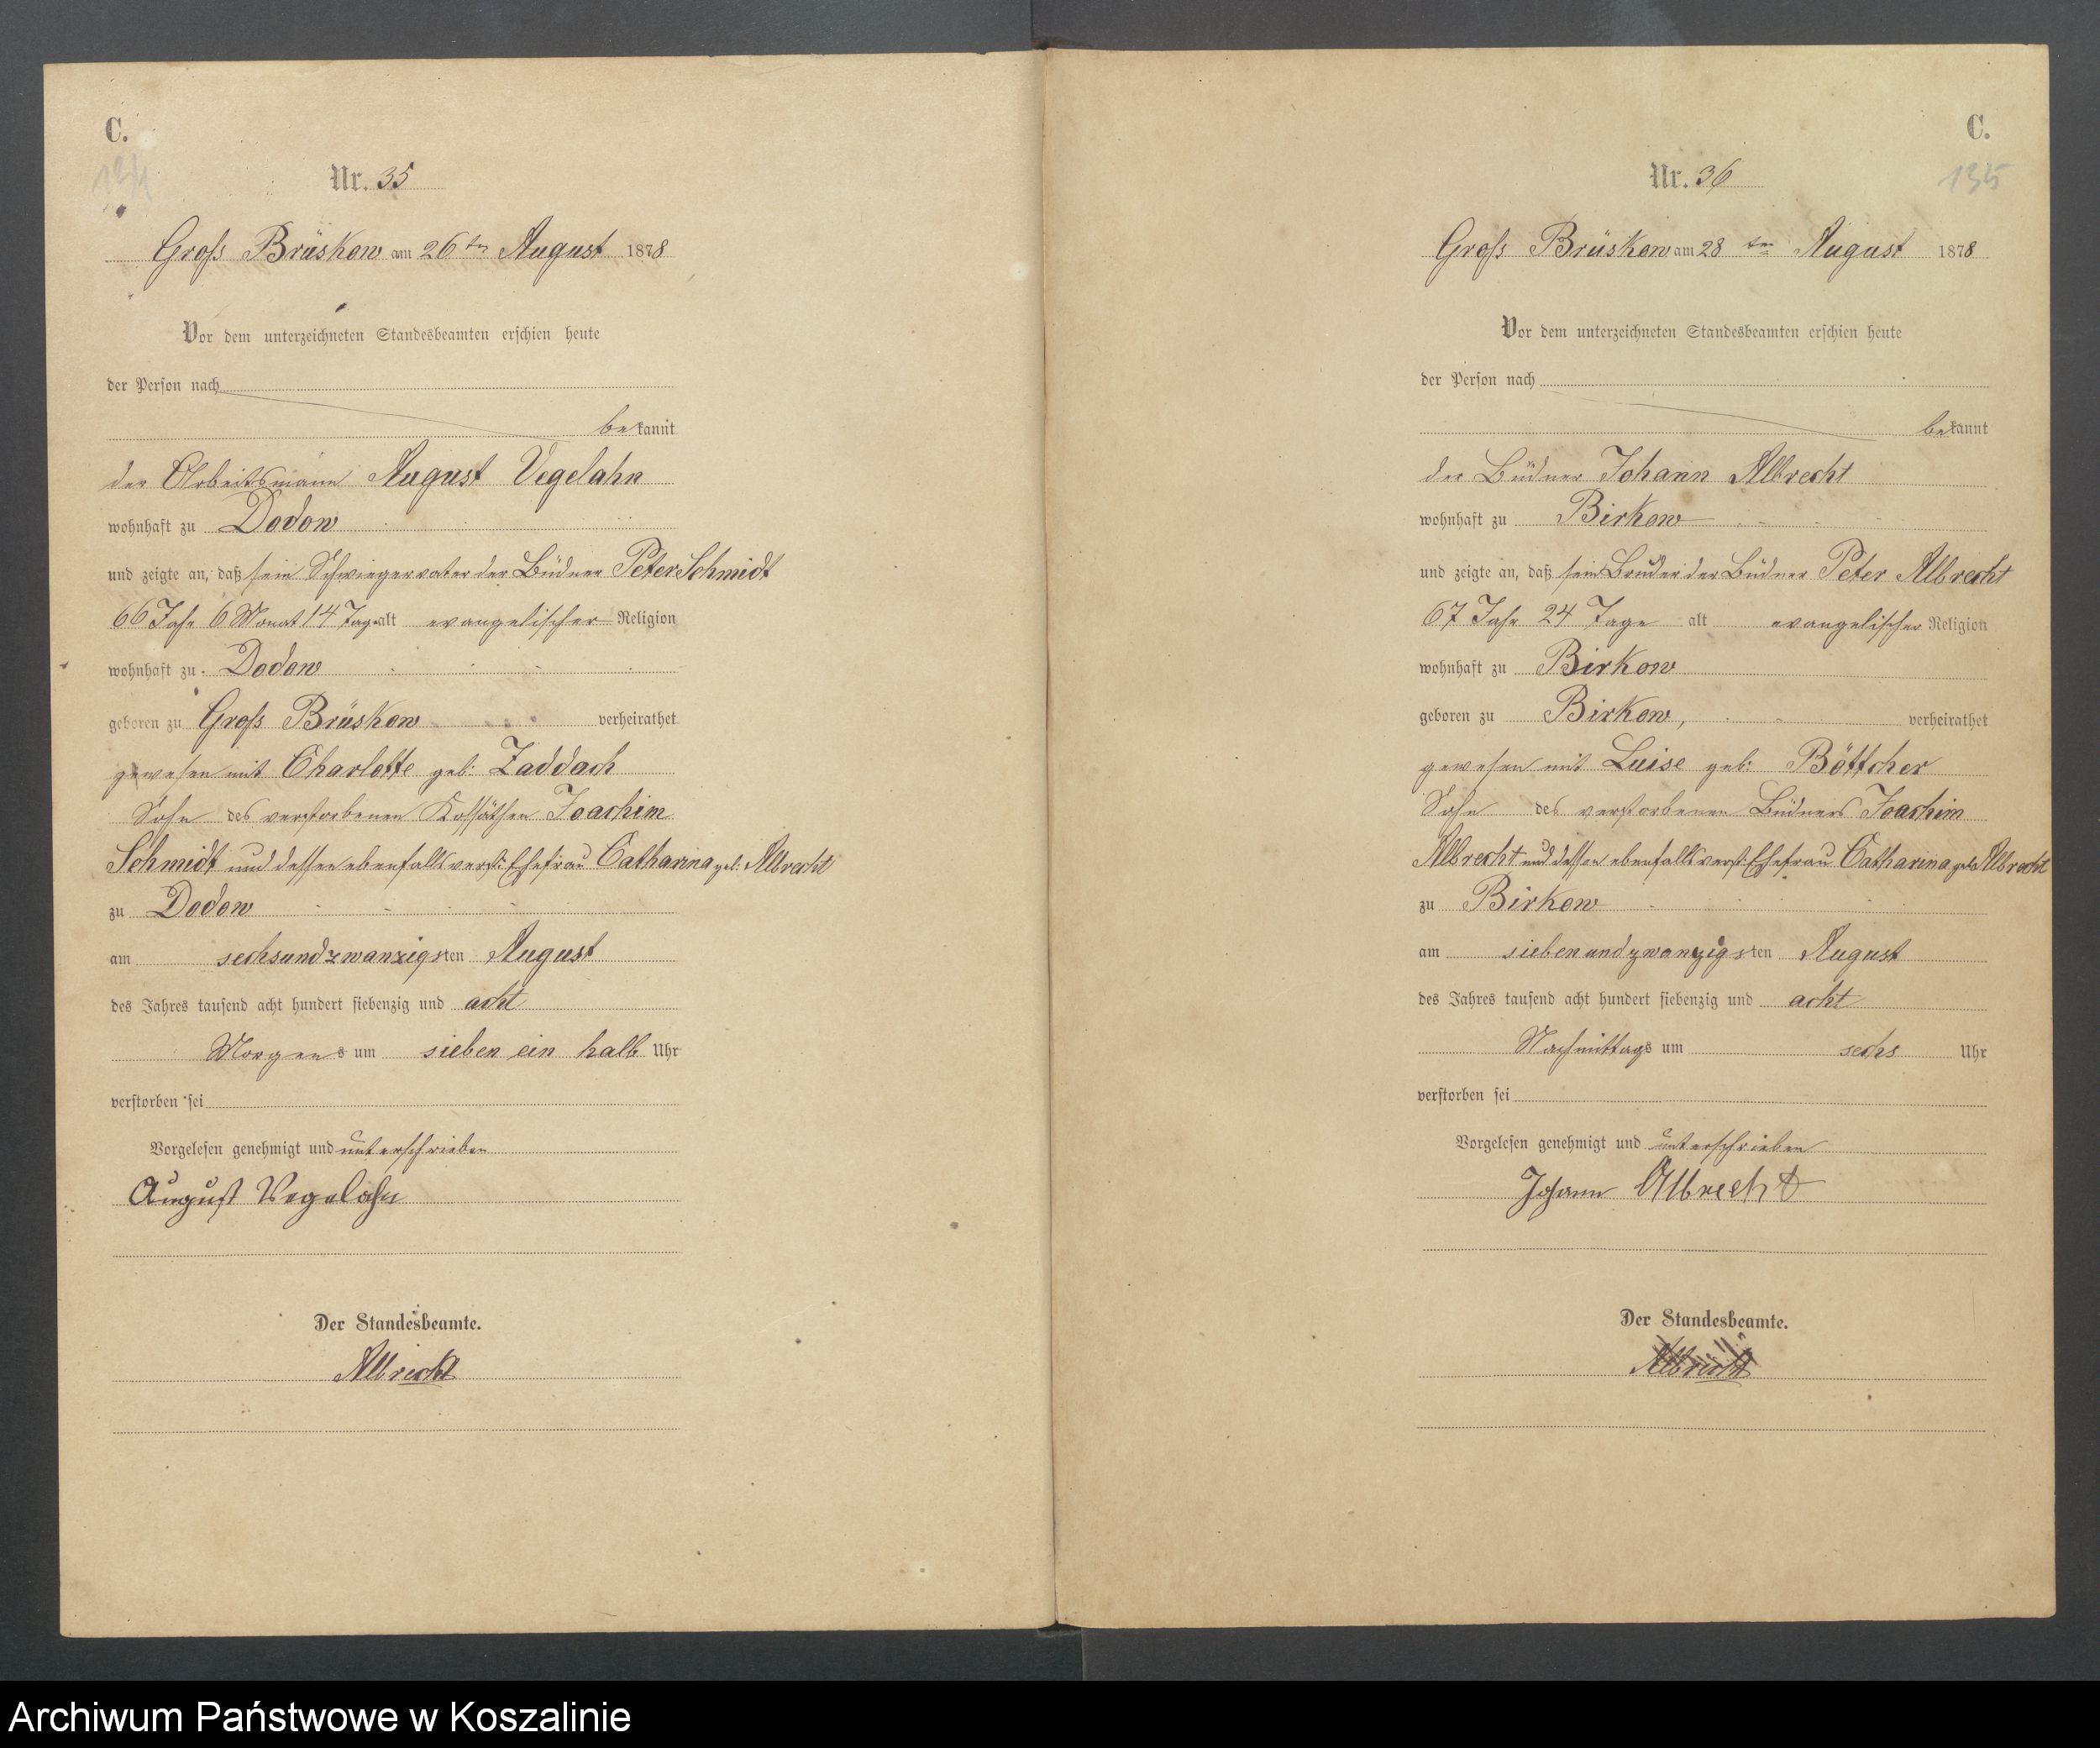 C.
134
Nr. 35
Groß Brüskow am 26ten August 1878
Vor dem unterzeichneten Standesbeamten erschien heute
der Person nach
bekannt
der Arbeitsmann August Vegelahn
wohnhaft zu Dodow
und zeigte an, daß sein Schwiegervater der Büdner Peter Schmidt
66 Jahr 6 Monat 14 Tage alt evangelischer Religion
wohnhaft zu Dodow
geboren zu Groß Brüskow verheirathet
gewesen mit Charlotte geb: Zaddach
Sohn des verstorbenen Kossäthen Joachim
Schmidt und dessen ebenfalls verst: Ehefrau Catharina geb: Albrecht
zu Dodow
am sechsundzwanzigsten August
des Jahres tausend acht hundert siebenzig und acht
Morgens um sieben ein halb Uhr
verstorben sei
Vorgelesen genehmigt und unterschrieben
August Vegelahn
Der Standesbeamte.
Albrecht
C.
135
Nr. 36
Groß Brüskow am 28ten August 1878
Vor dem unterzeichneten Standesbeamten erschien heute
der Person nach
bekannt
der Büdner Johann Albrecht
wohnhaft zu Birkow
und zeigte an, daß sein Bruder der Büdner Peter Albrecht
67 Jahr 24 Tage alt evangelischer Religion
wohnhaft zu Birkow
geboren zu Birkow, verheirathet
gewesen mit Luise geb: Böttcher
Sohn des verstorbenen Büdners Joachim
Albrecht und dessen ebenfalls verst: Ehefrau Catharina geb Albrecht
zu Birkow
am siebenundzwanzigsten August
des Jahres tausend acht hundert siebenzig und acht
Nachmittags um sechs Uhr
verstorben sei
Vorgelesen genehmigt und unterschrieben
Johann Albrecht
Der Standesbeamte.
Albrecht
Archiwum Państwowe w Koszalinie